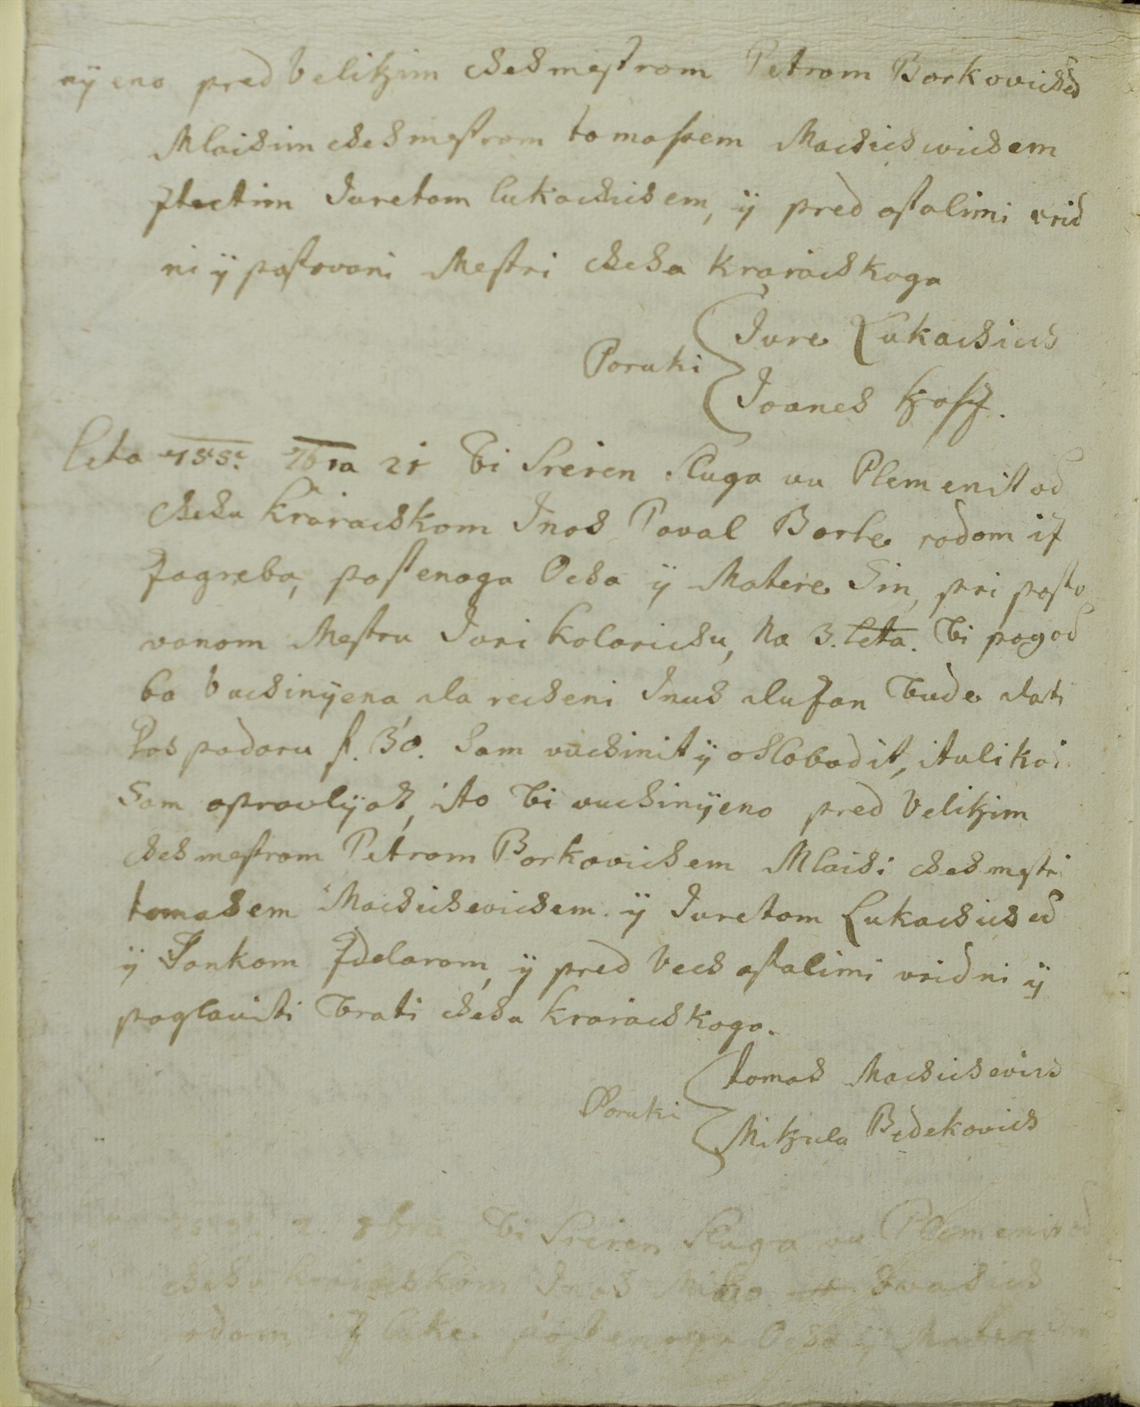 nÿeno pred Velikim chehmestrom Petrom Borkovichē
Mlaihim chehmestrom tomassem Machichevichem
ztretim Juretom lukachichem, ÿ pred ostalimi vrid
ni ÿ postovani Mestri cheha kraiachkoga
Poruki Jure Lukachich
Joanes
leta 755. 7bra 21 bi Sreien Sluga vu Plemenitoē
chehu kraiachkom Inos Paval Borle rodom iz
Zagreba, postenoga Ocha ÿ Matere Sin, pri posto
vanom Mestru Jori kolarichu, Na 3. leta. bi pogod
ba Vuchinÿena da recheni Inus dusan bude dati
Pos padaru f. 30. Sam vuchinit ÿ oslobodit, itulikai
Sam opravlÿat, ito bi vuchinÿeno pred Velikim
chehmestrom Petrom Borkovichem Mlaihi chehmestri
tomasem Machichevichem ÿ Juretom Lukachichē
ÿ Jankom Zdelarom, ÿ pred Vech ostalimi vridni ÿ
poglaviti brati cheha kraiachkoga.
Poruki tomas Machichevich
Mikula Bedekovich
2. 8bra bi Sreien Sluga vu Plemenitoē
chehu kraiachkom Inos Miko
rodom iz postenoga Ocha ÿ Matere